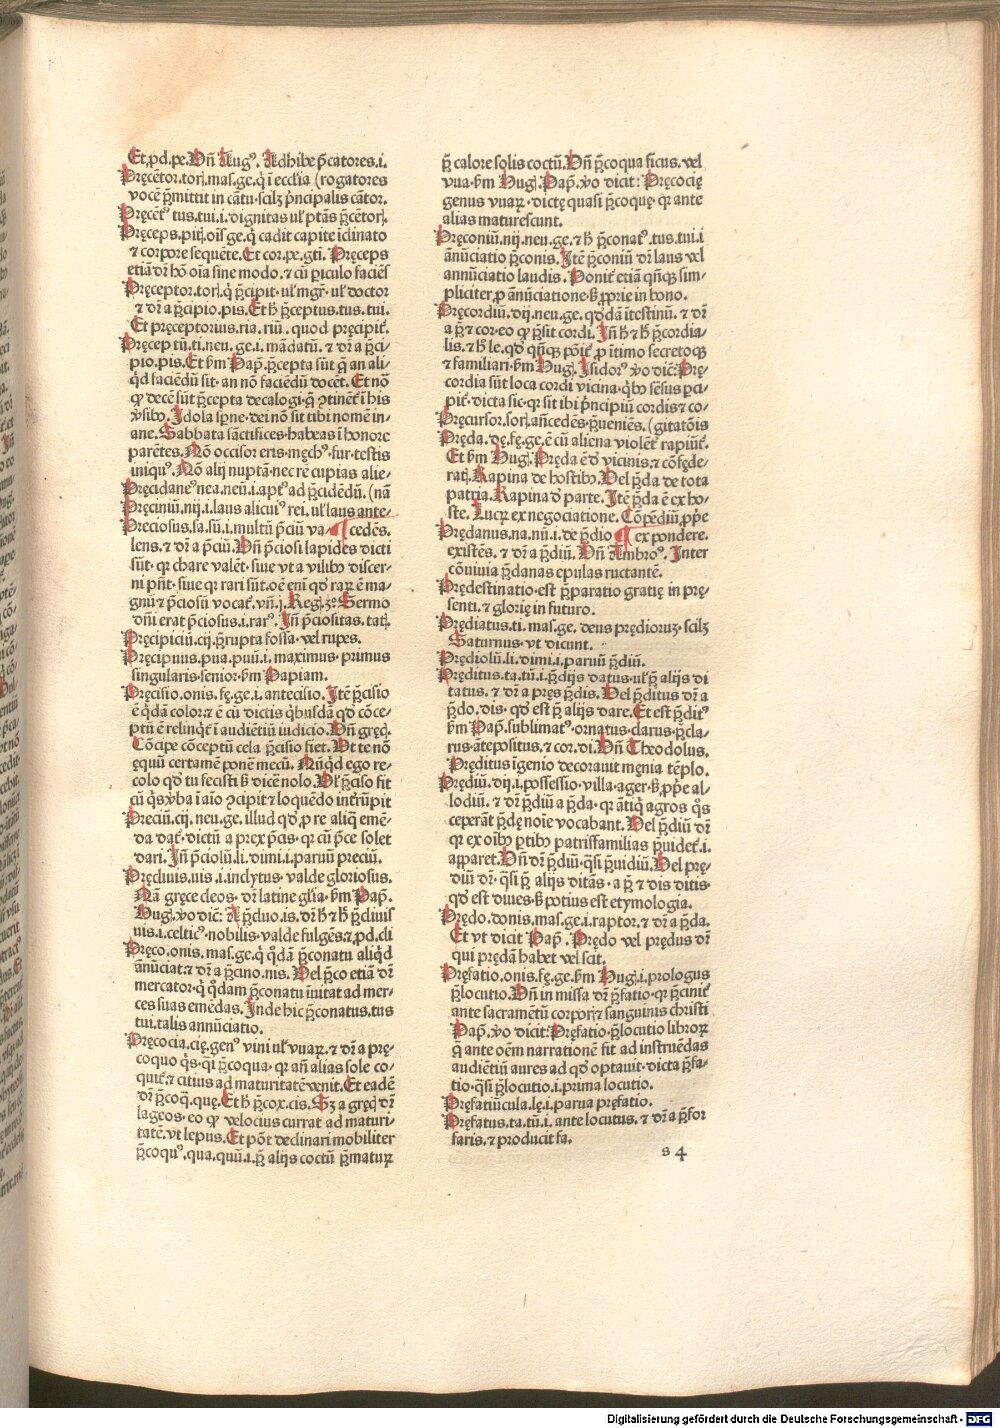 Et ꝓd.pe. Vñ Augꝰ. Adhibe p̄catores.i.
Pręcētor.torꝭ.mas.ge.q̇ ī eccl̄ia (rogatores
vocē p̄mittit in cātu.scilꝫ p̄ncipalis cātor.
Pręcētꝰ tus.tui.i.dignitas ul̓ ptās p̄cētorꝭ.
Pręceps.pitꝭ.oīs ge.q̇ cadit capite īclinato
⁊ corpore sequēte. Et cor.pe.gti. Pręceps
etiā dr̄ hō oīa sine modo.⁊ cū ꝑiculo faciēs
Pręceptor.torꝭ.q̇ p̄cipit.ul̓ mgr̄.ul̓ doctor
⁊ dr̄ a p̄cipio.pis. Et h̄ p̄ceptus.tus.tui.
Et pręceptorius.ria.riū.quod pręcipit.
Pręceptū.ti.neu.ge.i.mādatū.⁊ dr̄ a p̄ci-
pio.pis. Et ẜm Pap̄. p̄cepta sūt q̄ an ali-
q̇d faciēdū sit.an nō faciēdū docēt. Et nō
ꝙ decē sūt p̄cepta decalogi.q̄ ꝯtinēt ī his
ṽsibꝰ. Idola sꝑne.dei nō sit tibi nomē in-
ane. Sabbata sāctifices.habeas ī honore
parētes. Nō occisor eris.męchꝰ.fur.testis
iniquꝰ. Nō alij nuptā.nec rē cupias alie-
Pręcidaneꝰ nea.neū.i.aptꝰ ad p̄cidēdū. (nā
Pręciniū.nij.i.laus alicuiꝰ rei.ul̓ laus ante-
Preciosus.sa.sū.i.multū p̄ciū va- ¶ cedēs.
lens.⁊ dr̄ a p̄ciū. Vñ p̄ciosi lapides dicti
sūt.qꝛ chare valēt.siue vt a vilibꝰ discer-
ni pn̄t.siue qꝛ rari sūt.oē enī qd̓ raꝝ ē ma-
gnū ⁊ p̄ciosū vocat̉.vñ.j. Regꝭ.3ꝰ. Sermo
dn̄i erat p̄ciosus.i.rarꝰ. Iñ p̄ciositas.tatꝭ.
Pręcipiciū.cij.p̄rupta fossa.vel rupes.
Pręcipuus.pua.puū.i.maximus.primus
singularis.senior.ẜm Papiam.
Pręcisio.onis.fę.ge.i.antecisio. Itē p̄cisio
ē q̇dā color.⁊ ē cū dictis q̇busdā qd̓ cōce-
ptū ē relinq̇t̉ ī audiētiū iudicio. Vñ gręq.
Cōcipe cōceptū cela p̄cisio fiet. Vt te nō
equū certamē ponē mecū. Nūq̇d ego re-
colo qd̓ tu fecisti ẜ dicē nolo. Vl̓ p̄ciso fit
cū q̇s ṽba ī aīo ꝯcipit ⁊ loquēdo intr̄rūpit
Preciū.cij.neu.ge.illud qd̓ ꝓ re aliq̄ emē-
da dat̉.dictū a prex p̄cis.qꝛ cū p̄ce solet
dari. Iñ p̄ciolū.li.dimi.i.paruū preciū.
Pręcluis.uis.i.indytus.valde gloriosus.
Nā gręce cleos.dr̄ latine gl̄ia.ẜm Pap̄.
Hug.ṽo dic̄: A p̄cluo.is.dr̄ h̄ ⁊ h̄ p̄cluis
uis.i.celticꝰ.nobilis.valde fulgēs.⁊ ꝓd.cli
Pręco.onis.mas.ge.q̇ q̇dā p̄conatu aliq̇d
anūciat.⁊ dr̄ a p̄cino.nis. Vel p̄co etiā dr̄
mercator.q̇ q̇dam p̄conatu īuitat ad mer-
ces suas emēdas. Inde hic p̄conatus.tus
tui.talis annūciatio.
Pręcocia.cię.genꝰ vini ul̓ vuaꝝ.⁊ dr̄ a prę-
coquo q̇s.q̇i p̄coqua.qꝛ añ alias sole co-
quit̉.⁊ citius ad maturitatē venit. Et eadē
dr̄ p̄coq̄.quę. Et h̄ p̄cox.cis. Sꝫ a gręq̇ dr̄
lageos.eo ꝙ velocius currat ad maturi-
tatē.vt lepus. Et pōt declinari mobiliter
p̄coquꝰ.qua.quū.i.p̄ alijs coctū p̄matuꝝ
p̄ calore solis coctū. Vñ p̄coqua ficus.vel
vua.ẜm Hugꝭ. Pap̄.ṽo dicit: Pręcocię
genus vuaꝝ.dictę quasi p̄coquę.qꝛ ante
alias maturescunt.
Pręconiū.nij.neu.ge.⁊ h̄ p̄conatꝰ.tus.tui.i
anūciatio p̄conis. Itē p̄coniū dr̄ laus vel
annūciatio laudis. Ponit̉ etiā qn̄qꝫ sim-
pliciter ꝓ anūciatione.ẜ ꝓprie in bono.
Pręcordiū.dij.neu.ge.qd̓dā ītestinū.⁊ dr̄
a p̄ ⁊ cor.eo ꝙ p̄sit cordi. Iñ h̄ ⁊ h̄ p̄cordia-
lis.⁊ h̄ le.qd̓ qn̄qꝫ pōit̉ ꝓ ītimo secretoqꝫ
⁊ familiari.ẜm Hugꝭ. Isidorꝰ ṽo dic̄: Prę-
cordia sūt loca cordi vicina.q̇bꝰ sēsus ꝑci-
pit̉.dicta sic.qꝛ sit ibi p̄ncipiū cordis ⁊ co-
Pręcursor.sorꝭ.añcedēs.p̄ueniēs. (gitatōis
Pręda.dę.fę.ge.ē cū aliena violēt̉ rapiūt̉.
Et ẜm Hugꝭ. Pręda ē d̓ vicinis.⁊ cōfęde-
ratꝭ. Rapina de hostibꝰ. Vel p̄da de tota
patria. Rapina d̓ parte. Itē p̄da ē ex ho-
ste. Lucꝝ ex negociatione. Cōpēdiū ꝓp̄e
Prędanus.na.nū.i.de p̄dio ¶ ex pondere.
existēs.⁊ dr̄ a p̄diū. Vñ Ambroꝰ. Inter
cōuiuia p̄danas epulas ructantē.
Prędestinatio.est p̄paratio gratię in prę-
senti.⁊ glorię in futuro.
Prędiatus.ti.mas.ge.deus prędioruꝫ.scilꝫ
Saturnus.vt dicunt.
Prędiolū.li.dimi.i.paruū p̄diū.
Pręditus.ta.tū.i.p̄dijs datus.ul̓ p̄ alijs di
tatus.⁊ dr̄ a pręs p̄dis. Vel p̄ditus dr̄ a
p̄do.dis.qd̓ est p̄ alijs dare. Et est p̄ditꝰ
ẜm Pap̄.sublimatꝰ.ornatus.clarus.p̄cla-
rus.ātepositus.⁊ cor.di. Vñ Theodolus.
Pręditus īgenio decorauit męnia tēplo.
Prędiū.dij.i.possessio.villa.ager.ẜ ꝓp̄e al-
lodiū.⁊ dr̄ p̄diū a p̄da.qꝛ ātiq̇ agros q̇s
ceperāt p̄dę noīe vocabant. Vel p̄diū dr̄
qꝛ ex oībꝰ ꝑtibꝰ patrisfamilias p̄uidet̉.i.
apparet. Vñ dr̄ p̄diū.q̇si p̄uidiū. Vel prę-
diū dr̄.q̇si p̄ alijs ditās.a p̄ ⁊ dis ditis.
qd̓ est diues.ẜ potius est etymologia.
Prędo.donis.mas.ge.i.raptor.⁊ dr̄ a p̄da.
Et vt dicit Pap̄. Prędo vel prędus dr̄
qui prędam habet vel scit.
Pręfatio.onis.fę.ge.ẜm Hugꝭ.i.prologus
p̄locutio. Vñ in missa dr̄ p̄fatio.qꝛ p̄cinit̉
ante sacrametū corporꝭ ⁊ sanguinis christi
Pap̄.ṽo dicit: Pręfatio.p̄locutio libroꝝ
q̄ ante oēm narrationē fit ad instruēdas
audiētiū aures ad qd̓ optauit.dicta p̄fa-
tio.q̇si p̄locutio.i.prima locutio.
Pręfatiūcula.lę.i.parua pręfatio.
Pręfatus.ta.tū.i.ante locutus.⁊ dr̄ a p̄for
faris.⁊ producit fa.
s 4
Digitalisierung gefördert durch die Deutsche Forschungsgemeinschaft - DFG